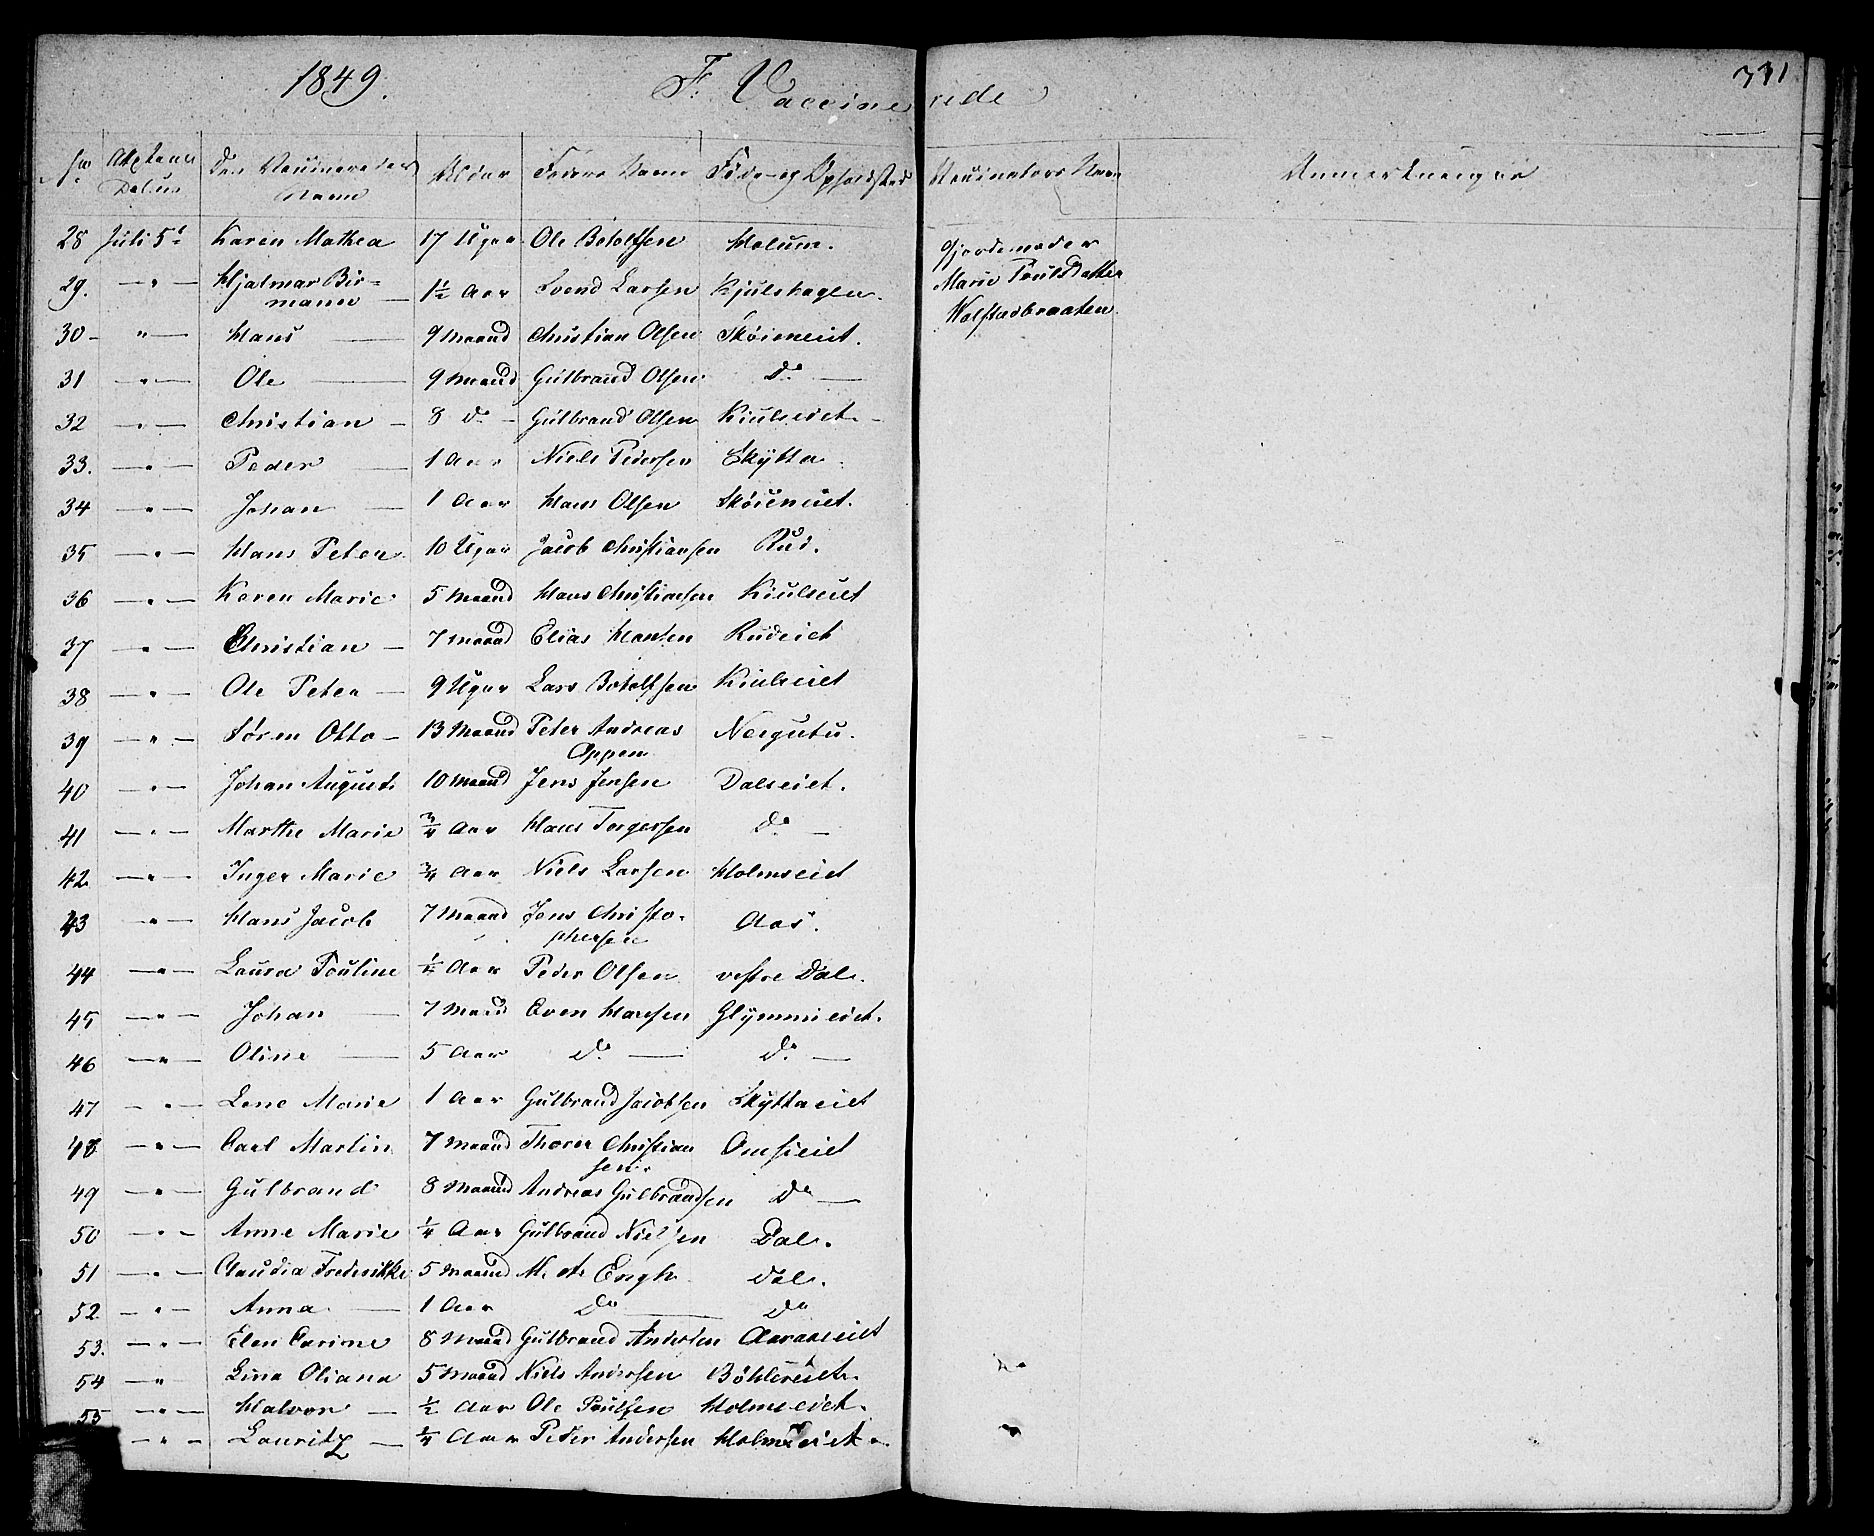 1849. F. Vaccinerede 331
No Attestens Datum Den Vaccineredes Navn Alder Faders Navn Føde- og Opholdsted Vaccinators Navn Anmerkninger
28 Juli 5te Karen Mathea 17 Uger Ole Botolfsen Holum. Gjordemoder
29. — " — Hjalmar Bir=
mann — 1½ Aar Svend Larsen Kjulshagen. Marie Poulsdatter
Wolfstadbraaten.
30 — " — Hans — 9 Maaned Christian Olsen Skøieneiet.
31 — " — Ole — 9 Maaned Gulbrand Olsen Do —
32 — " — Christian — 8 Do — Gulbrand Olsen Kiulseiet —
33. — " — Peder — 1 Aar Niels Pedersen Skytta.
34 — " — Johan — 1 Aar Hans Olsen Skøieneiet.
35 — " — Hans Peter 10 Uger Jacob Christiansen Rud.
36 — " — Karen Marie 5 Maaned Hans Christiansen Kiulseiet
37 — " — Christian — 7 Maaned Elias Hansen Rudeiet
38 — " — Ole Peter — 9 Uger Lars Botolfsen Kiulseiet
39 — " — Søren Otto — 13 Maaned Peter Andreas
Appen Nergutu.
40 — " — Johan August. 10 Maaned Jens Jensen Dalseiet.
41 — " — Marthe Marie ¾ Aar Hans Torgersen Do —
42 — " — Inger Marie ¾ Aar Niels Larsen Holmseiet
43 — " — Hans Jacob 7 Maaned Jens Christo-
phersen Aas.
44 — " — Laura Pouline ½ Aar Peder Olsen vestre Dal.
45 — " — Johan — 7 Maaned Even Hansen Glymmieiet.
46 — " — Oline — 5 Aar Do — Do —
47 — " — Lene Marie 1 Aar Gulbrand Jacobsen Skyttaeiet
48 — " — Carl Martin 7 Maaned Thorer Christian
sen. Omsieiet
49 — " — Gulbrand 8 Maaned Andreas Gulbrandsen Do —
50 — " — Anne Marie ¼ Aar Gulbrand Nielsen Dal.
51 — " — Claudia Frederikke 5 Maaned Engh Dal.
52. — " — Anna — 1 Aar Do — Do
53. — " — Elen Carine 8 Maaned Gulbrand Andersen Aaraseiet
54 — " Lina Oliana 5 Maaned Niels Andersen Böhlereiet.
55 — " — Halvor — ½ Aar Ole Poulsen Holmseiet.
— " — Lauritz — ¾ Aar Peder Andersen Holmseiet.